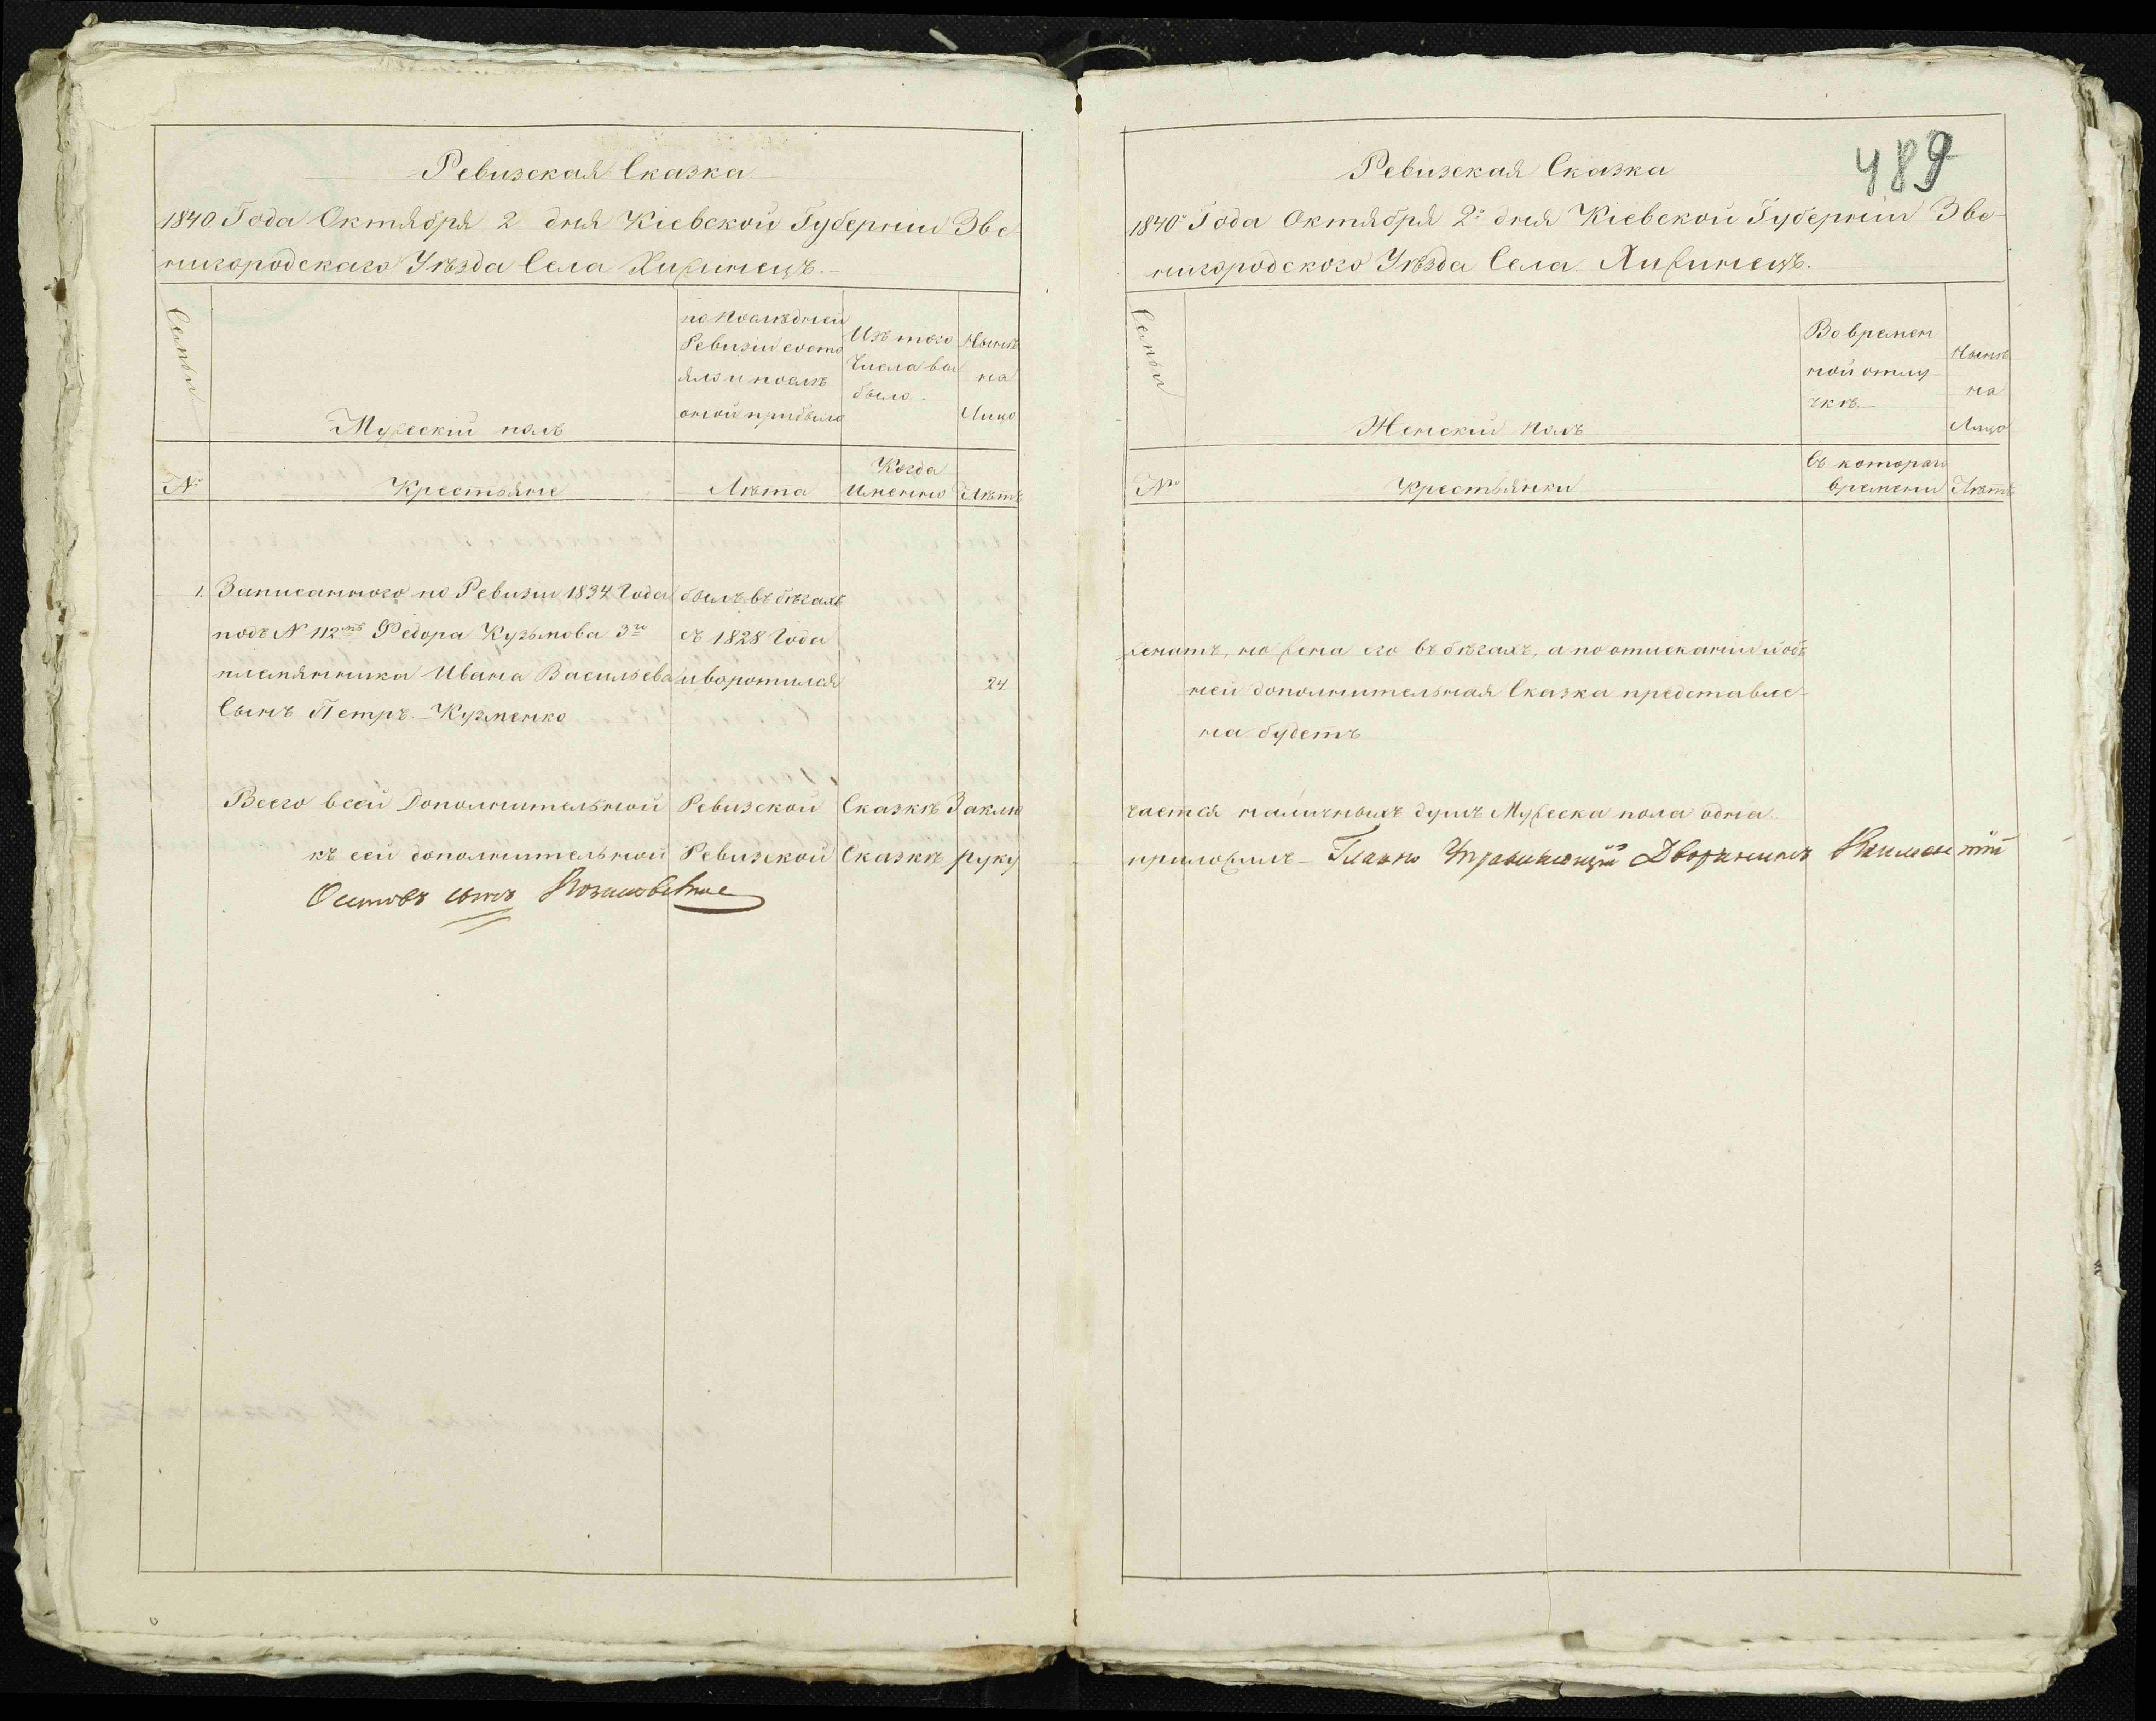 Ревизская Сказка
1840. Года Октября 2 дня Кіевской Губерніи Зве
нигородскаго Уѣзда Села Хижинецъ.
Семьи
Мужескій полъ
по послѣдней
Ревизіи состо
яло и послѣ
оной прибыло
Изъ того
Числа вы
было.
Нынѣ
на
Лицо
№
Крестьяне
Лѣта
Когда
Именно
Лѣтъ
1. Записанного по Ревизіи 1834 Года
подъ № 112мъ Федора Кузьмова 3го
племянника Ивана Васильева
Сынъ Петръ - Кузменко
былъ въ бѣгахъ
съ 1828 Года
и воротился
24
Всего в сей Дополнительной Ревизской Сказкѣ Заклю
къ сей дополнительной Ревизской Сказкѣ руку
сынъ
489
Ревизская Сказка
1840го Года Октября 2го дня Кіевской Губерніи Зве-
нигородского Уѣзда Села Хижинецъ.
Семьи
Женскій Полъ
Во времен
ной отлу-
чкѣ.
Нынѣ
на
Лицо
№
Крестьянки
Съ котораго
времени
Лѣтъ
женатъ, но жена его въ бѣгахъ, а по отысканіи и объ
ней дополнительная Сказка представле-
на будетъ
чается наличныхъ душъ Мужеска пола одна.
приложилъ - Главно Управляющій Дворянинъ